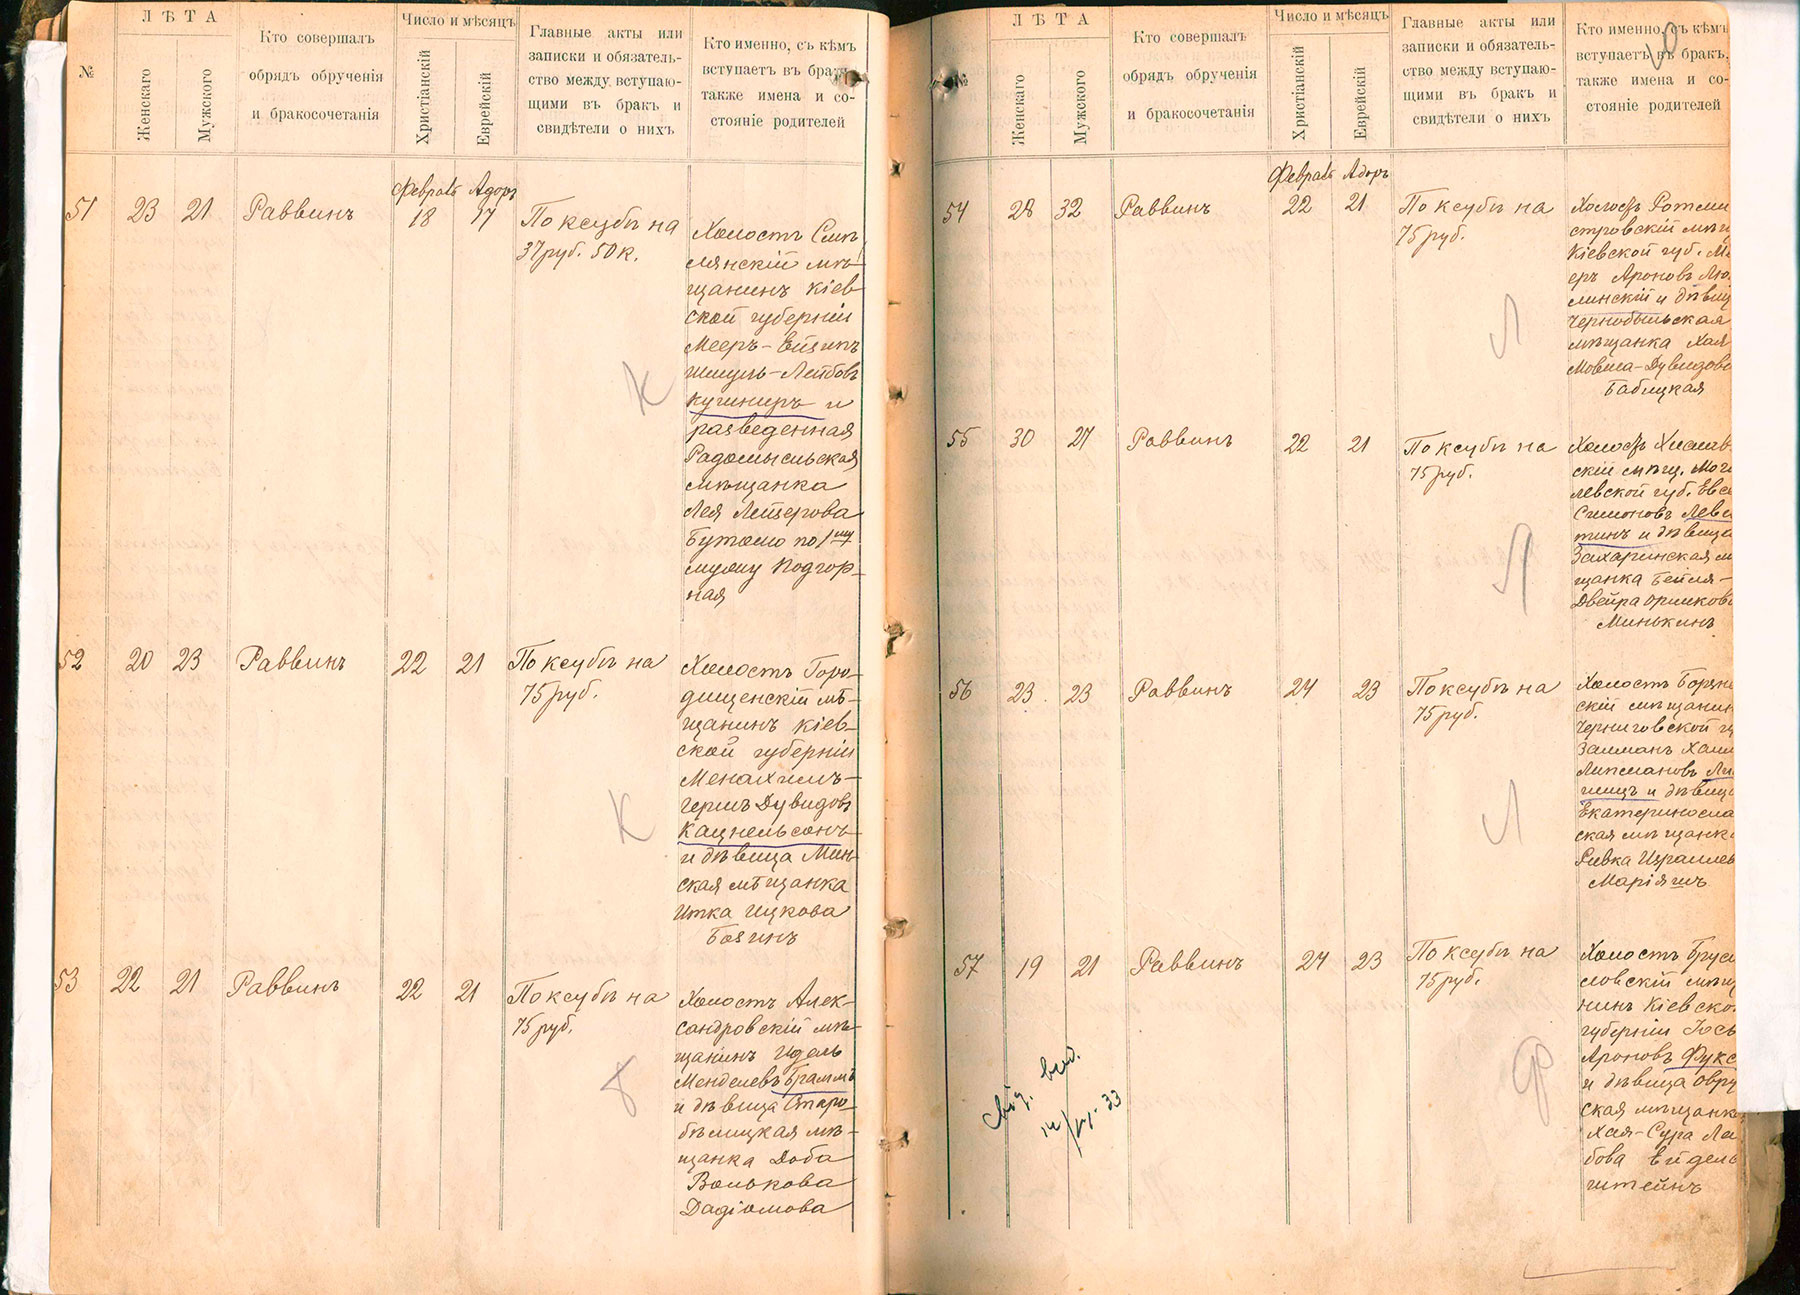 №
ЛѢТА
Женскаго
Мужского
Кто совершалъ
обрядъ обрученія
и бракосочетанія
Число и мѣсяцъ
Христіанскій
Еврейскій
Главные акты или
записки и обязатель-
ство между вступаю-
щими въ бракъ и
свидѣтели о нихъ
Кто именно, съ кѣмъ
вступаетъ въ бракъ,
также имена и со-
стояніе родителей
Февраль Адоръ
51 23 21 Раввинъ 18 17 По ксубѣ на
37 руб. 50 к.
Холостъ Смѣ-
лянскій мѣ-
щанинъ Кіев
ской губерніи
Мееръ-Ейзикъ
Шмуль-Лейбовъ
Кушниръ и
разведенная
Радомысльская
мѣщанка
Лея Лейзерова
Бутою по 1му
мужу Подгор-
ная
52 20 23 Раввинъ 22 21 По ксубѣ на
75 руб.
Холостъ Горо-
дищенскій мѣ-
щанинъ Кіев-
ской губерніи
Менахимъ-
Гершъ Дувидовъ
Кацнельсонъ
и дѣвица Мин-
ская мѣщанка
Итка Ицкова
Базинъ
53 22 21 Раввинъ 22 21 По ксубѣ на
75 руб.
Холостъ Алек-
сандровскій мѣ-
щанинъ Идель
Менделевъ Браммъ
и дѣвица Старо-
бѣлицкая мѣ-
щанка Доба
Волькова
К
К
Б
№
ЛѢТА
Женскаго
Мужского
Кто совершалъ
обрядъ обрученія
и бракосочетанія
Число и мѣсяцъ
Христіанскій
Еврейскій
Главные акты или
записки и обязатель-
ство между вступаю-
щими въ бракъ и
свидѣтели о нихъ
Кто именно, съ кѣмъ
вступаетъ въ бракъ,
также имена и со-
стояніе родителей
Февраль Адоръ
54 28 32 Раввинъ 22 21 По ксубѣ на
75 руб.
Холостъ Ротми
стровскій мѣщ
Кіевской губ. М
еръ Ароновъ Лю
линскій и дѣвиц
Чернобыльская
мѣщанка Хая
Мовша-Дувидово
Бабицкая
55 30 27 Раввинъ 22 21 По ксубѣ на
75 руб.
Холостъ Хислав
скій мѣщ. Моги
левской губ. Евсе
Симоновъ Леви
тинъ и дѣвица
Захаринская м
щанка Бейля-
Двейра Оршкова
Минькинъ
56 23 23 Раввинъ 24 23 По ксубѣ на
75 руб.
Холостъ Борзне
скій мѣщанин
Черниговской г
Залманъ Хаим
Липмановъ Ли
шицъ и дѣвица
Екатеринослав
ская мѣщанка
Ривка Израилев
Маріяшъ
57 19 21 Раввинъ 24 23 По ксубѣ на
75 руб.
Холостъ Бруси
ловскій мѣщ
нинъ Кіевско
губерніи Іось
Ароновъ Фукс
и дѣвица Овру
ская мѣщанк
Хая-Сура Ле
бова Ейдель
штейнъ
Л
Л
Л
Ф